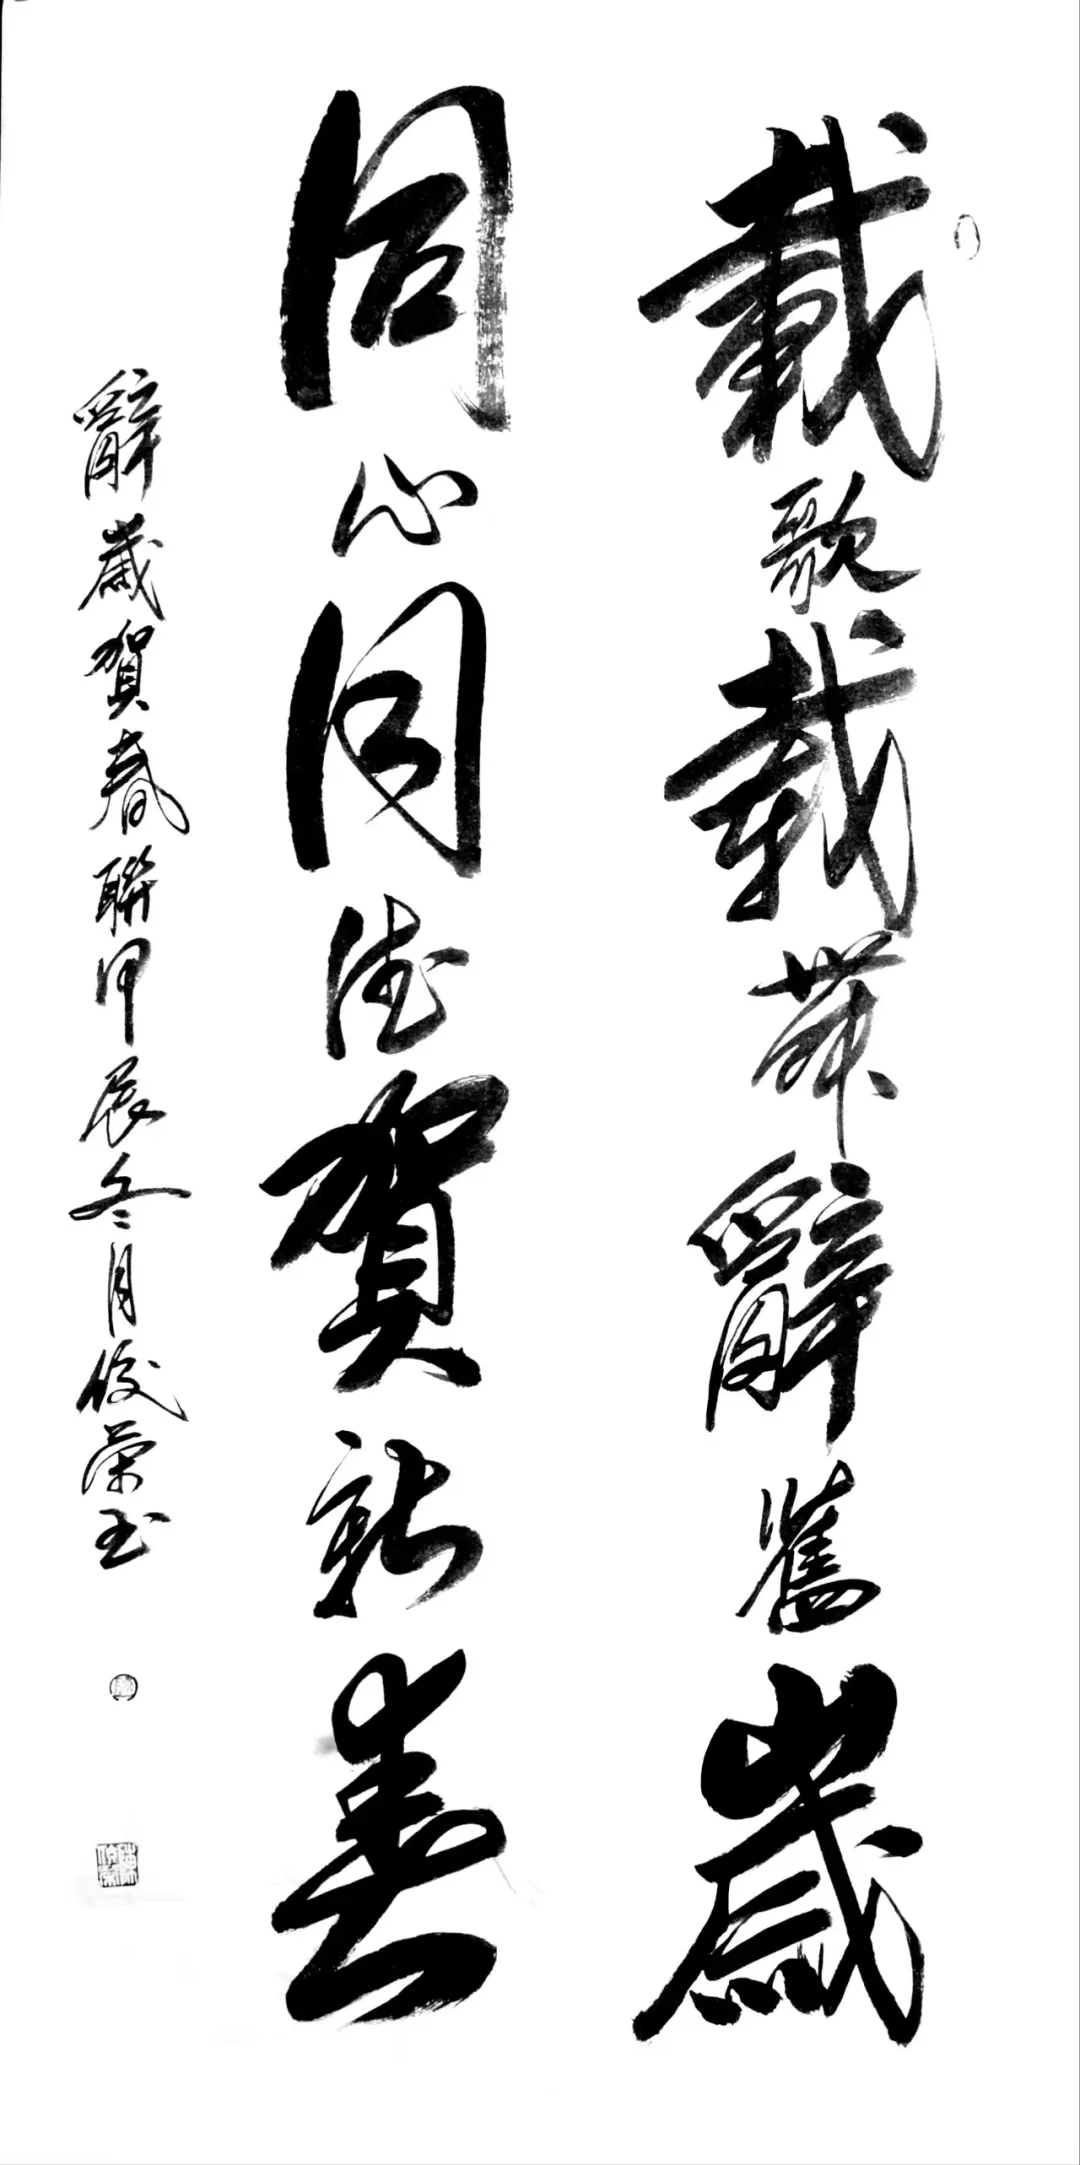 載歌載舞辭舊歲
同心同德賀新春
辭歲賀春聯甲辰冬月俊榮玉